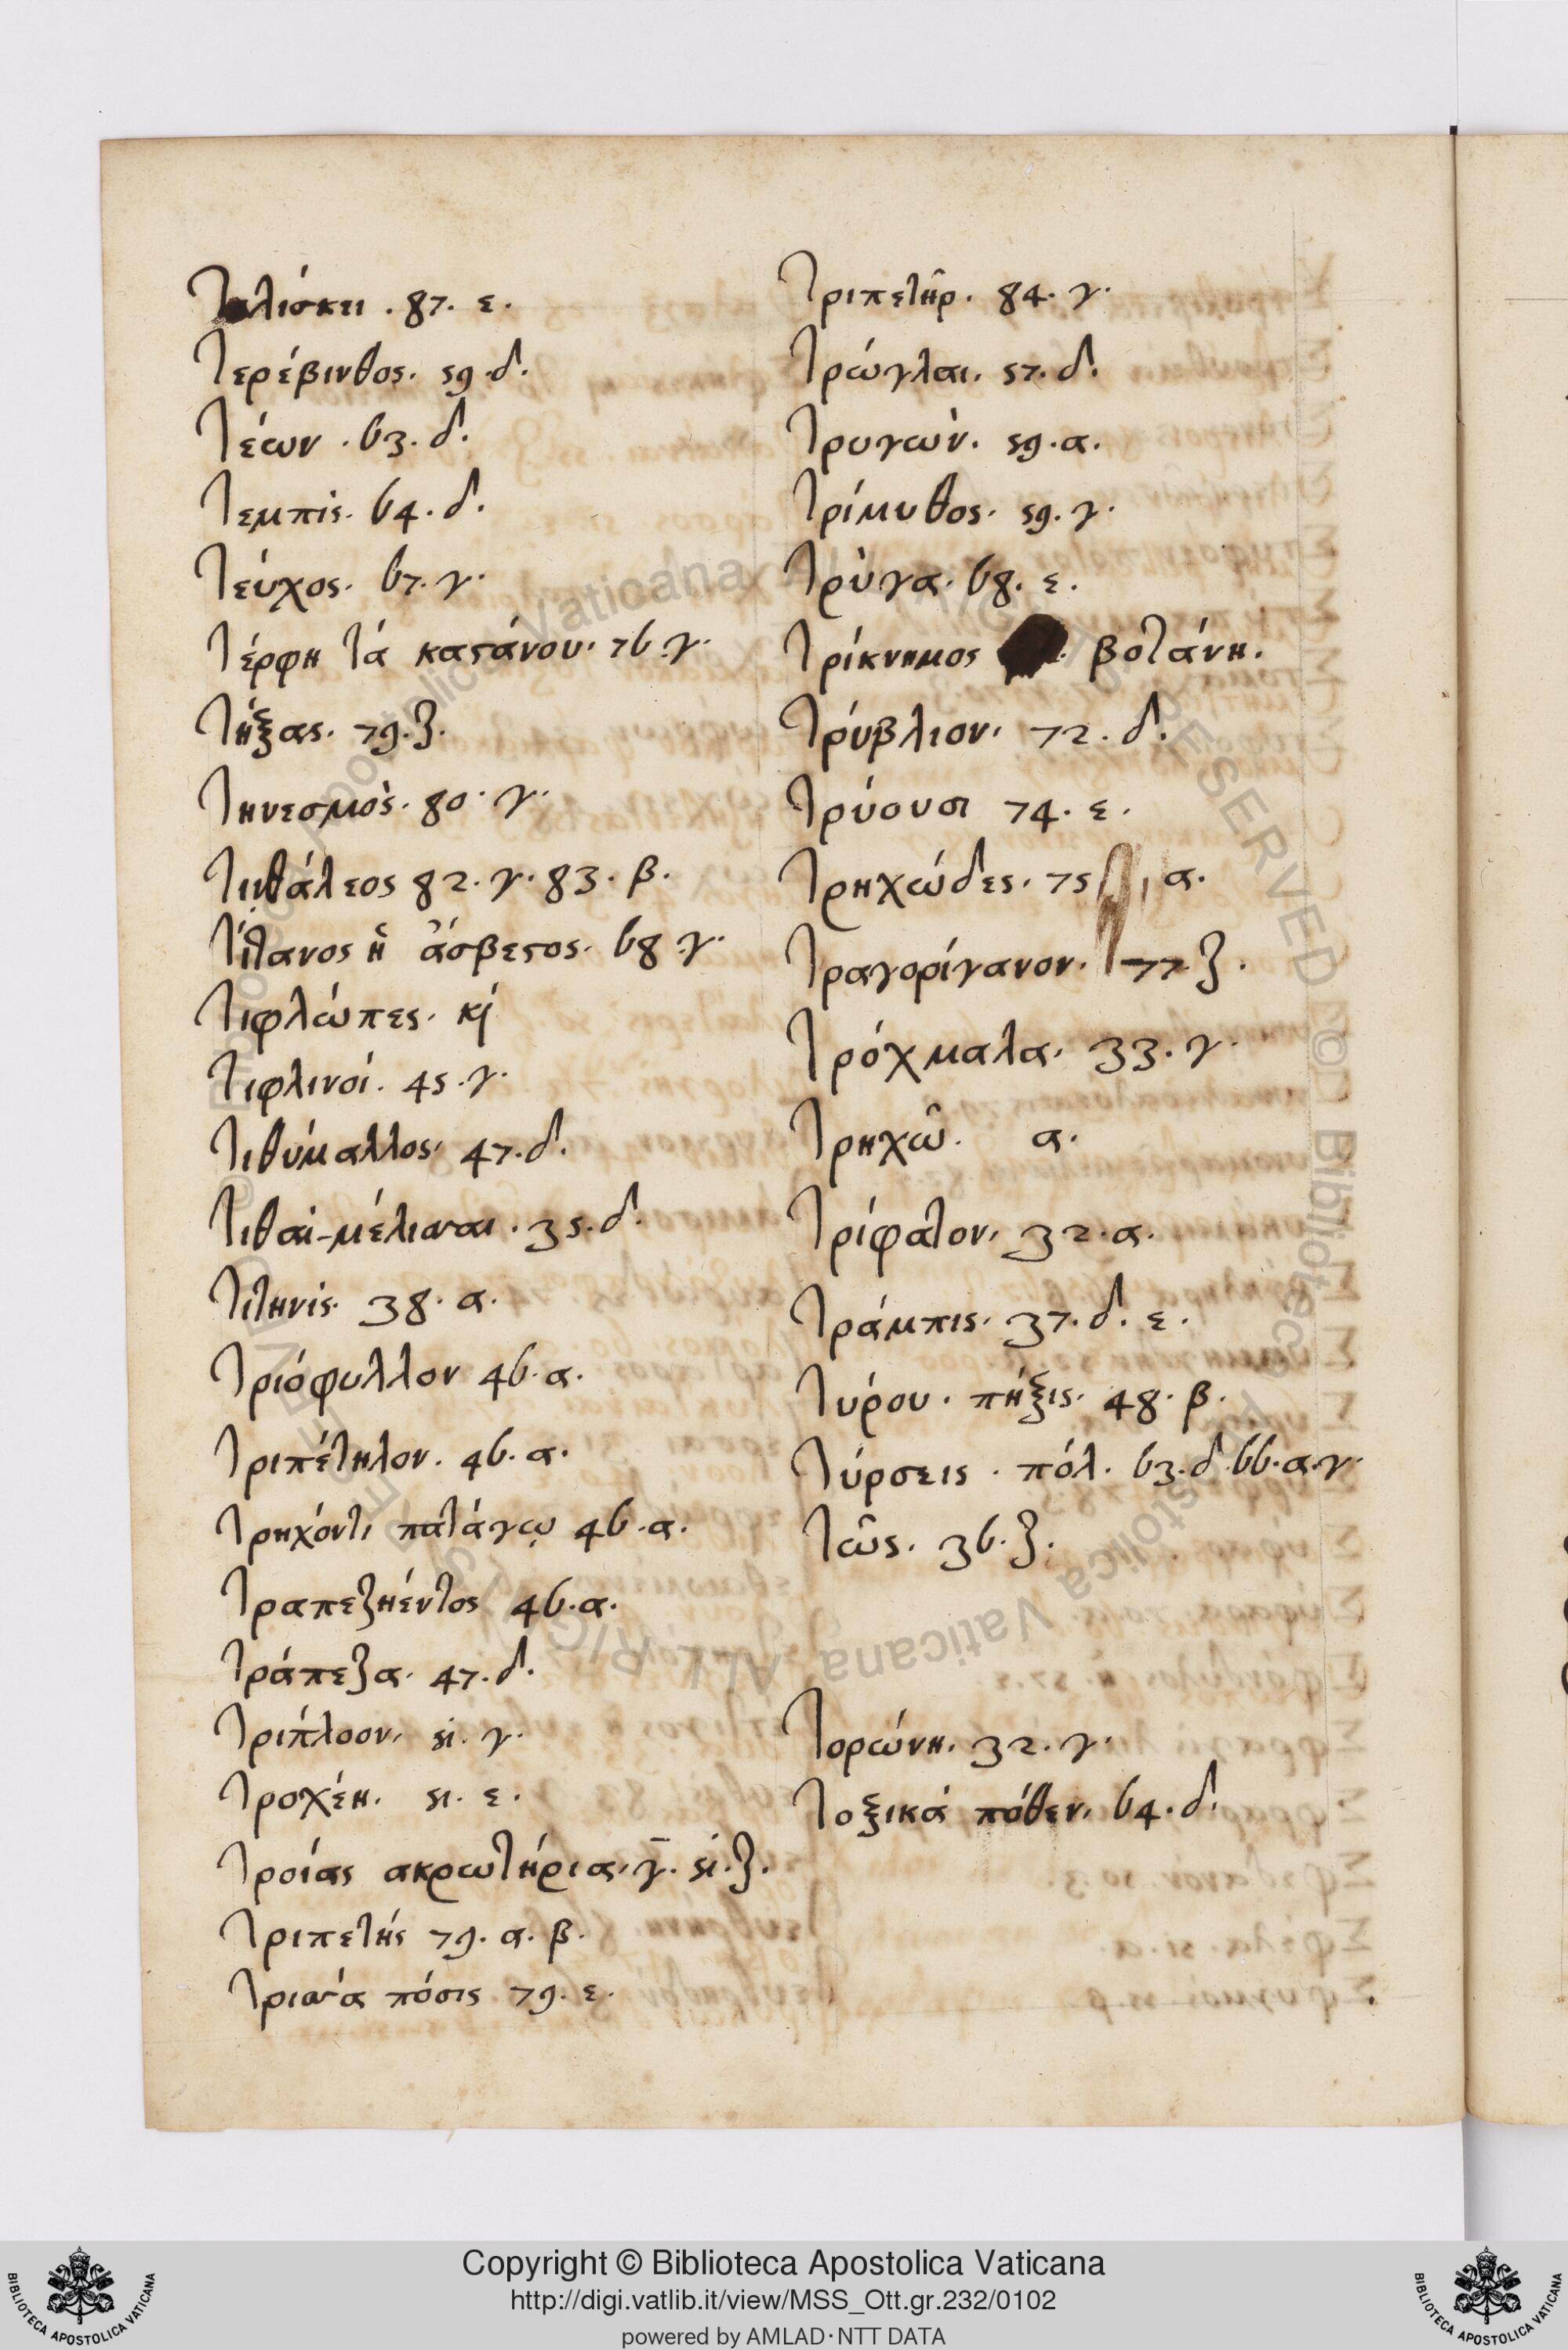 Ταλίσκει . 87. ε.
Τερέβινθος. 59. δ.
Τέων . 63. δ.
Τεμπίς. 64. δ.
Τεύχος. 67. γ.
Τέρφη τά καστάνου. 76. γ.
Τήξας. 79. ζ.
Τηνεσμός. 80. γ.
Τιθάλεος 82. γ. 83. β.
Τίτανος ἢ ἄσβεστος. 68 γ.
Τιφλώπες. κỳ
Τιφλινοί. 45. γ.
Τιθύμαλλος. 47. δ.
Τιθαί-μέλισσαι . 35. δ.
Τιτηνίς. 38. α.
Τριόφυλλον 46. α.
Τριπέτηλον. 46. α.
Τρηχόντι πατάγῳ 46. α.
Τραπεζηέντος 46. α.
Τράπεζα. 47. δ.
Τρίπλοον. 51. γ.
Τροχέη. 51. ε.
Τροίας ακρωτήρια. γ̄. 51. ζ.
Τριπετής 79. α. β.
Τρισσά πόσις 79. ε.
Τριπετῆρ. 84. γ.
Τρώγλαι. 57. δ.
Τρυγών. 59. α.
Τρίμυθος. 59. γ.
Τρύγα. 68. ε.
Τρίκνημος βοτάνη.
Τρύβλιον. 72. δ.
Τρύουσι 74. ε.
Τρηχώδες. 75 α.
Τραγορίγανον. 77. ζ.
Τρόχμαλα. 33. γ.
Τρηχῶ. α.
Τρίφατον. 32. α.
Τράμπις. 37. δ. ε.
Τύρου . πήξις. 48. β.
Τύρσεις . πόλ. 63. δ. 66. α. γ.
Τῶς. 36. ζ.
Τορώνη. 32. γ.
Τοξικά πόθεν. 64. δ.
Copyright © Biblioteca Apostolica Vaticana
http://digi.vatlib.it/view/MSS_Ott.gr.232/0102
powered by AMLAD·NTT DATA